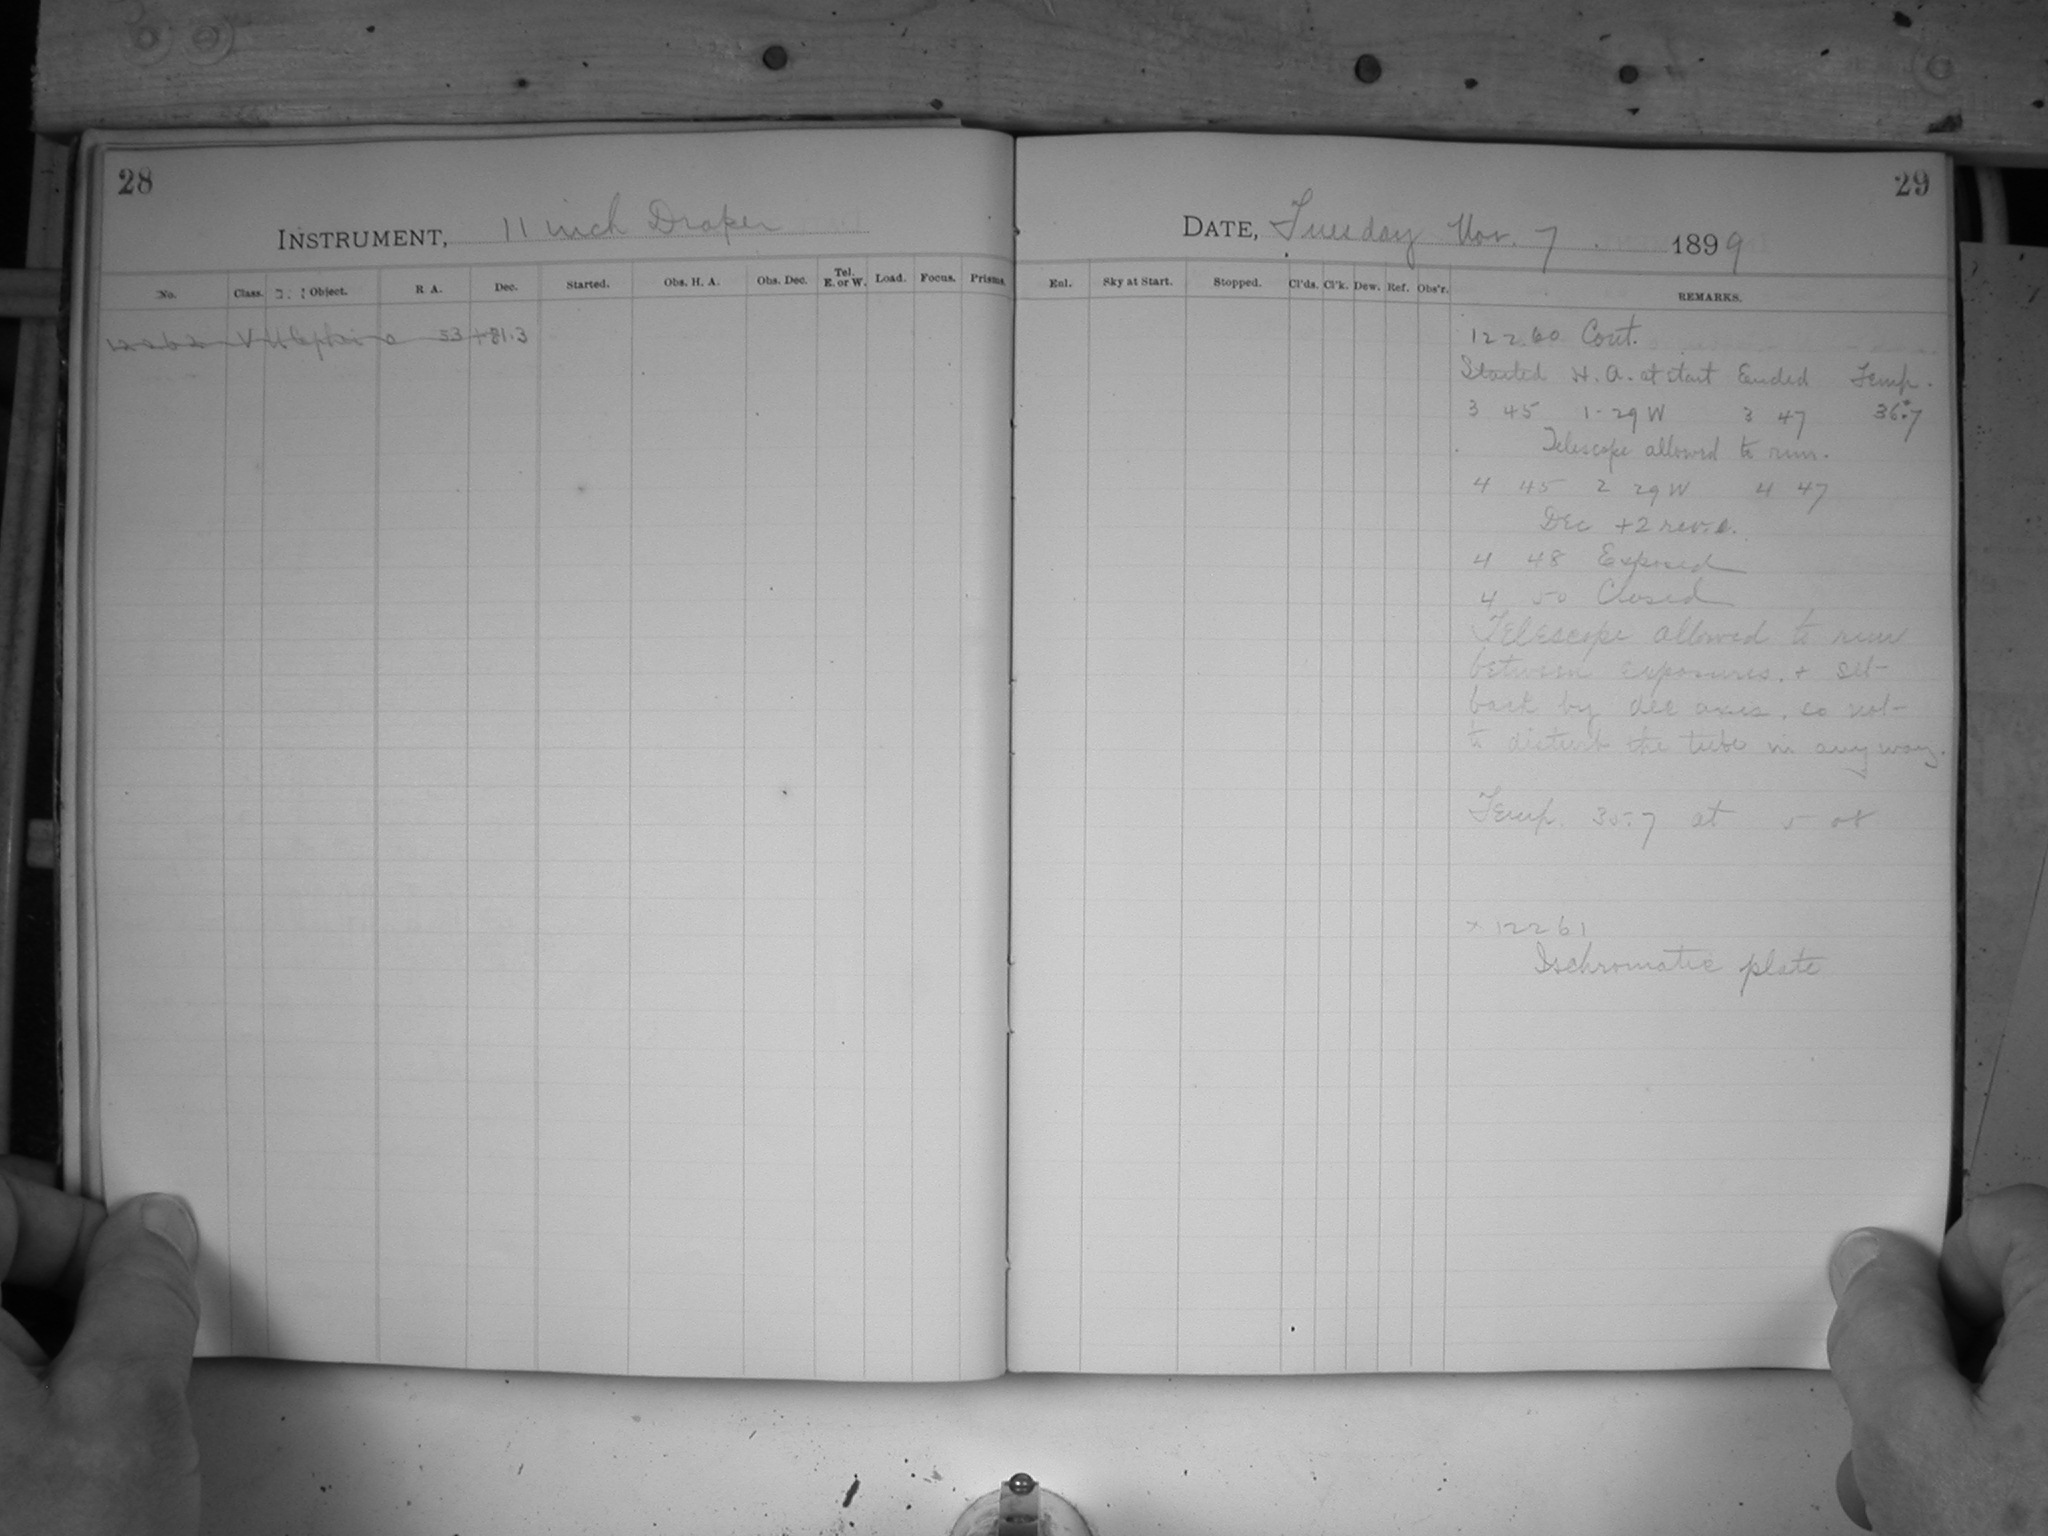 28
INSTRUMENT, 11 inch Draper
No. Class. Object. R A. Dec. Started. Obs. H. A. Obs. Dec. Tel. E. or W. Load. Focus. Prisms.
12262 V U Cephei 0 53 +81.3
29
DATE, Tuesday Nov. 7 1899
Enl. Sky at Start. Stopped. Cl'ds. Cl'k. Dew. Ref. Obs'r. REMARKS.
12260 Cont.
Started H. A. at start Ended Temp.
3 45 1-29 W 3 47 36.°7
Telescope allowed to run.
4 45 2 29 W 4 47
Dec +2 rev.
4 48 Exposed
4 50 Closed
Telescope allowed to run
between exposures. + set
back by dec axis. so not
to disturb the tube in any way.
Temp. 35.7 at 5 08
× 12261
Isochromatic plate